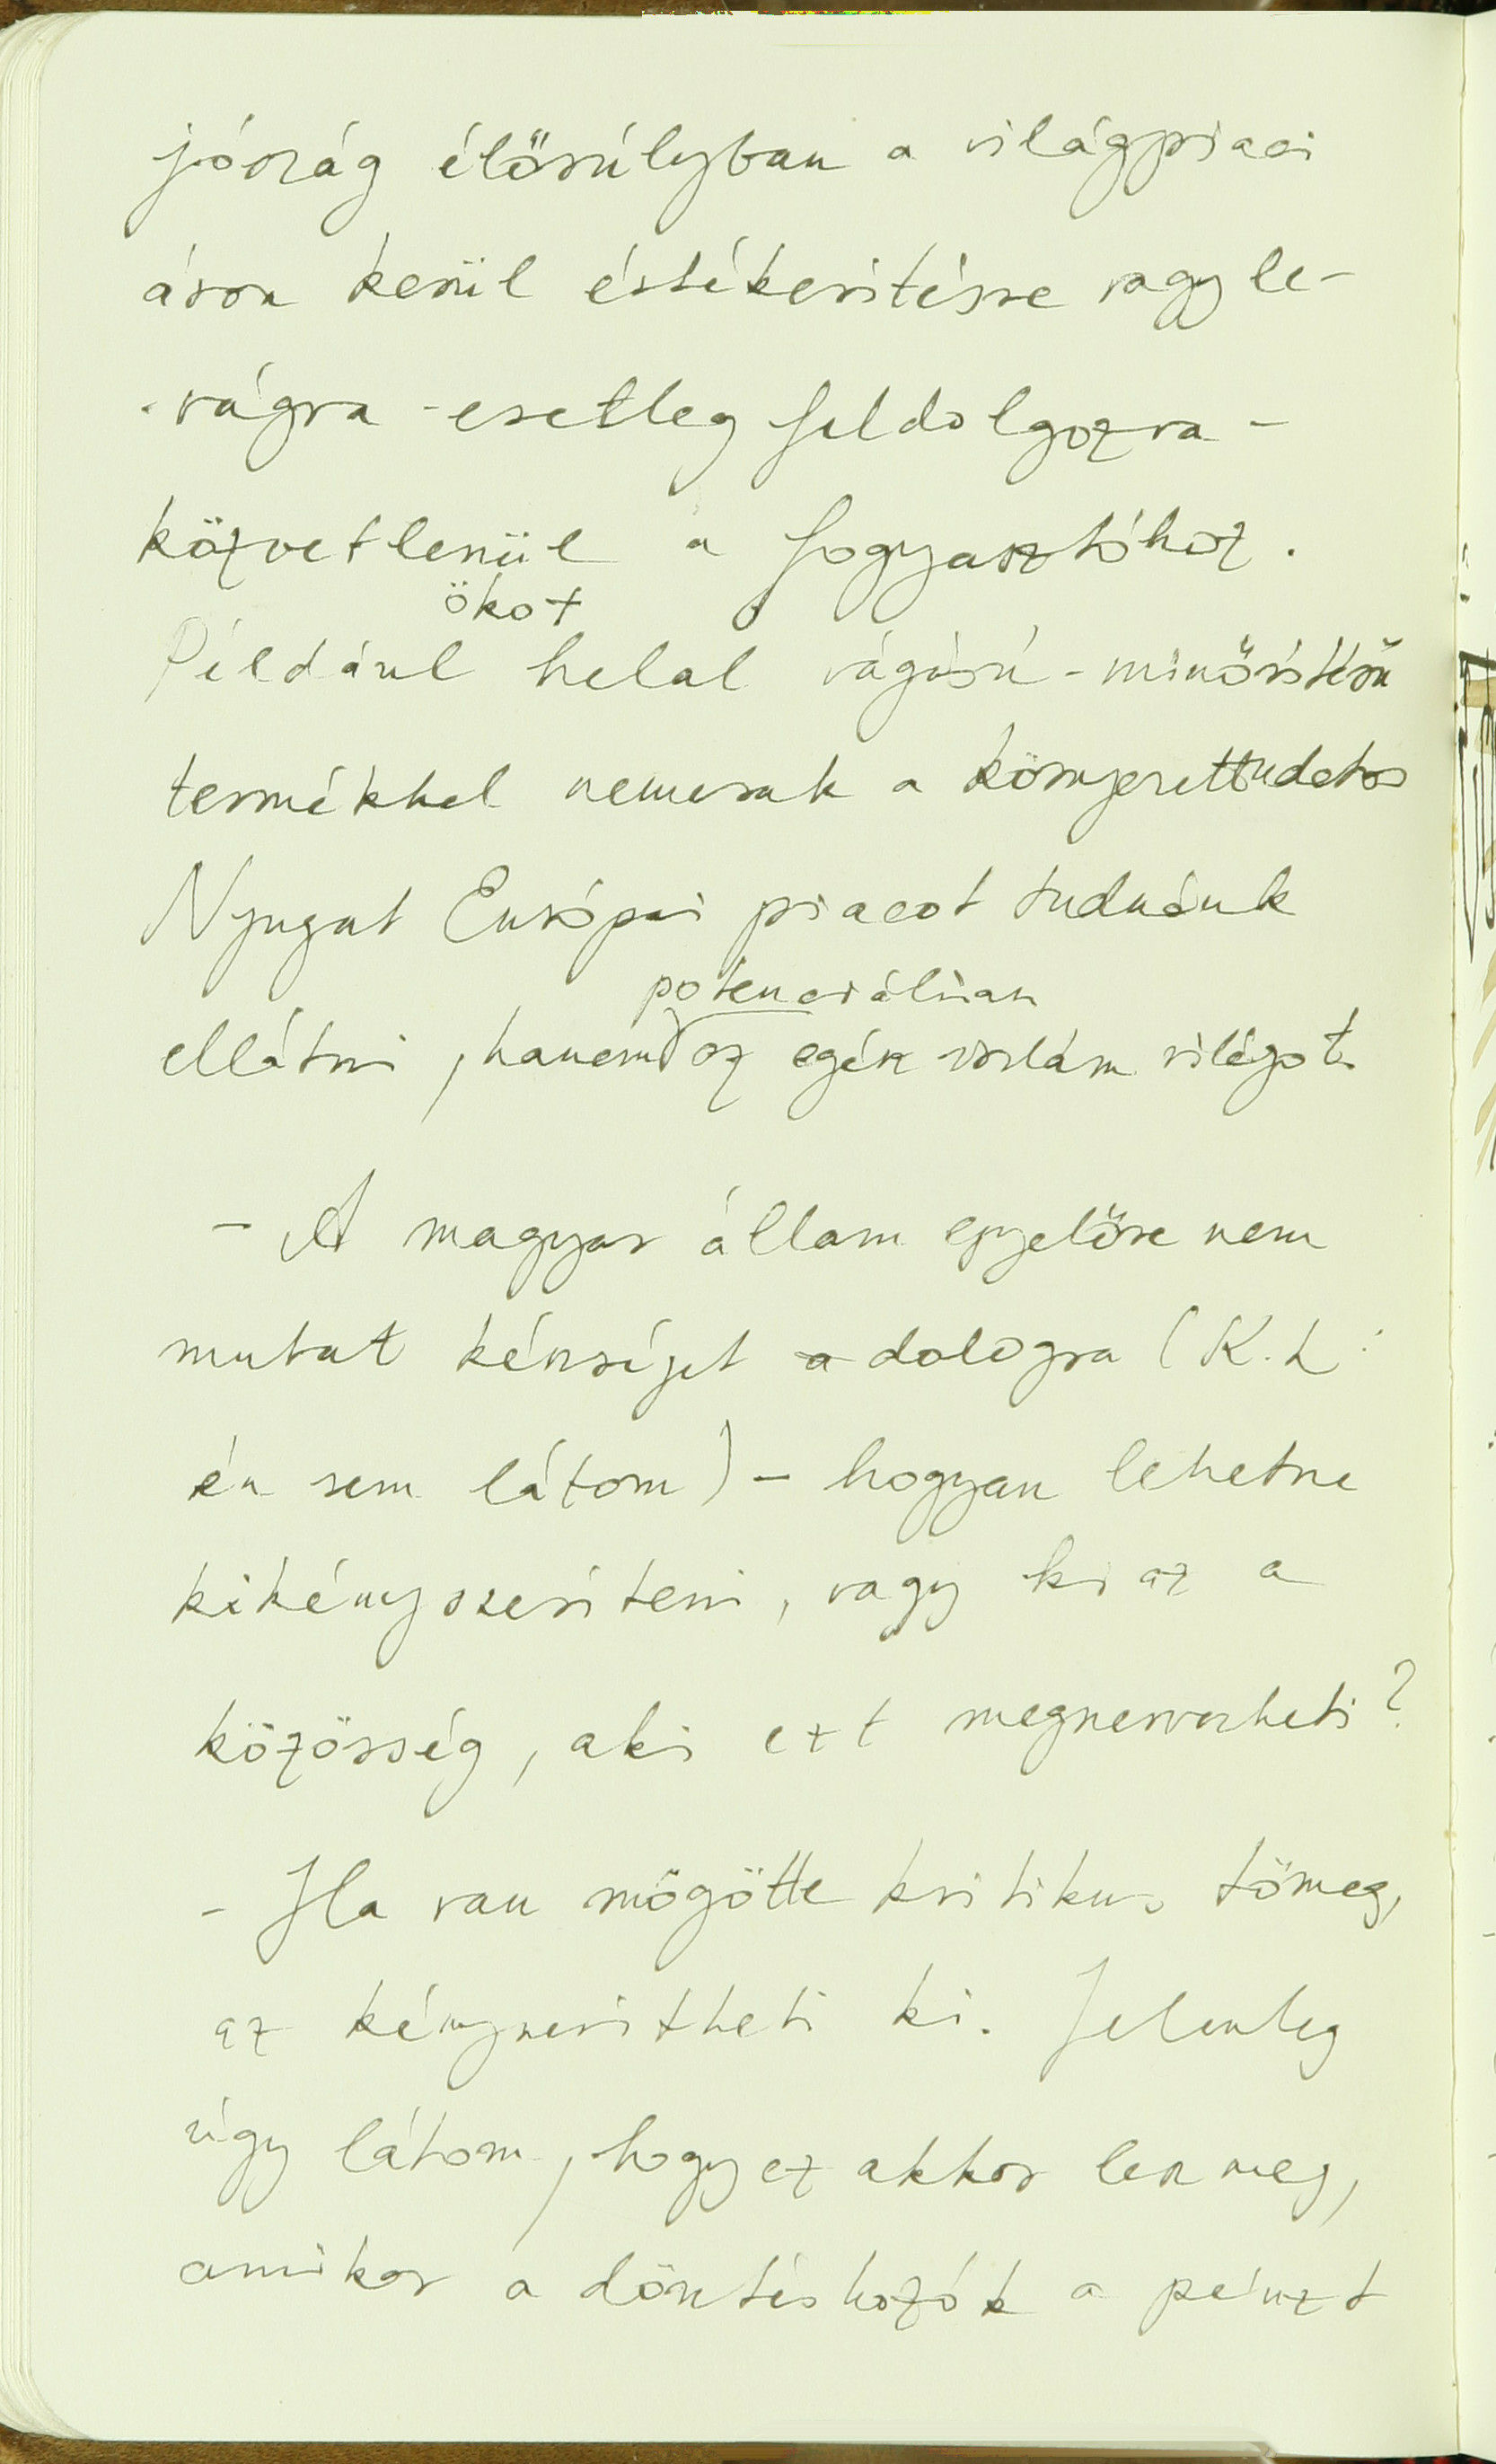 jószág élősúlyban a világpiaci
áron kerül értékesítésre vagy le-
vágva - esetleg feldolgozva -
közvetlenül a fogyasztóhoz.
ökot
Például helal vágású - minősítésű
termékkel nemcsak a környezettudatos
Nyugat Európai piacot tudnánk
potenciálisan
ellátni, hanem az egész iszlám világot
- A magyar állam egyelőre nem
mutat készséget a dologra (K. L:
én sem látom) - hogyan lehetne
kikényszeríteni, vagy ki az a
közösség, aki ezt megszervezheti?
- Ha van mögötte kritikus tömeg,
az kényszerítheti ki. Jelenleg
úgy látom, hogy ez akkor lesz meg,
amikor a döntéshozók a pénzt